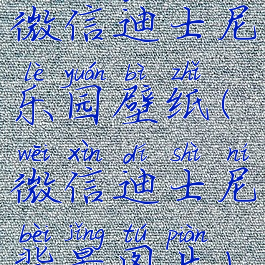 微信迪士尼
lè yuán bì zhǐ
乐园壁纸(
wēi xìn dí shì ní
微信迪士尼
bèi jǐng tú piàn
背景图片)